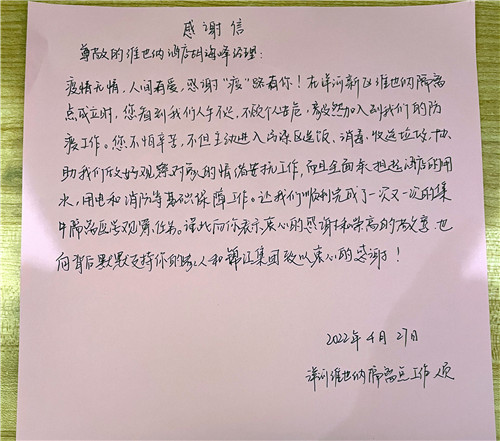 感谢信
尊敬的维也纳酒店赵海峰经理：
疫情无情，人间有爱，感谢"疫"路有你！在洋河新区维也纳隔离
点成立时，您看到我们人手不够，不顾个人安危，毅然加入到我们的防
疫工作。您不怕辛苦，不但主动进入污染区送饭、消毒、收运垃圾，协
助我们做好观察对象的情绪安抚工作，而且全面承担起酒店的用
水，用电和消防等基础保障工作。让我们顺利完成了一次又一次的集
中隔离医学观察任务。谨此向你表示衷心的感谢和崇高的敬意，也
向背后默默支持你的家人和锦江集团致以衷心的感谢！
2022年4月27日
洋河维也纳隔离点工作人员